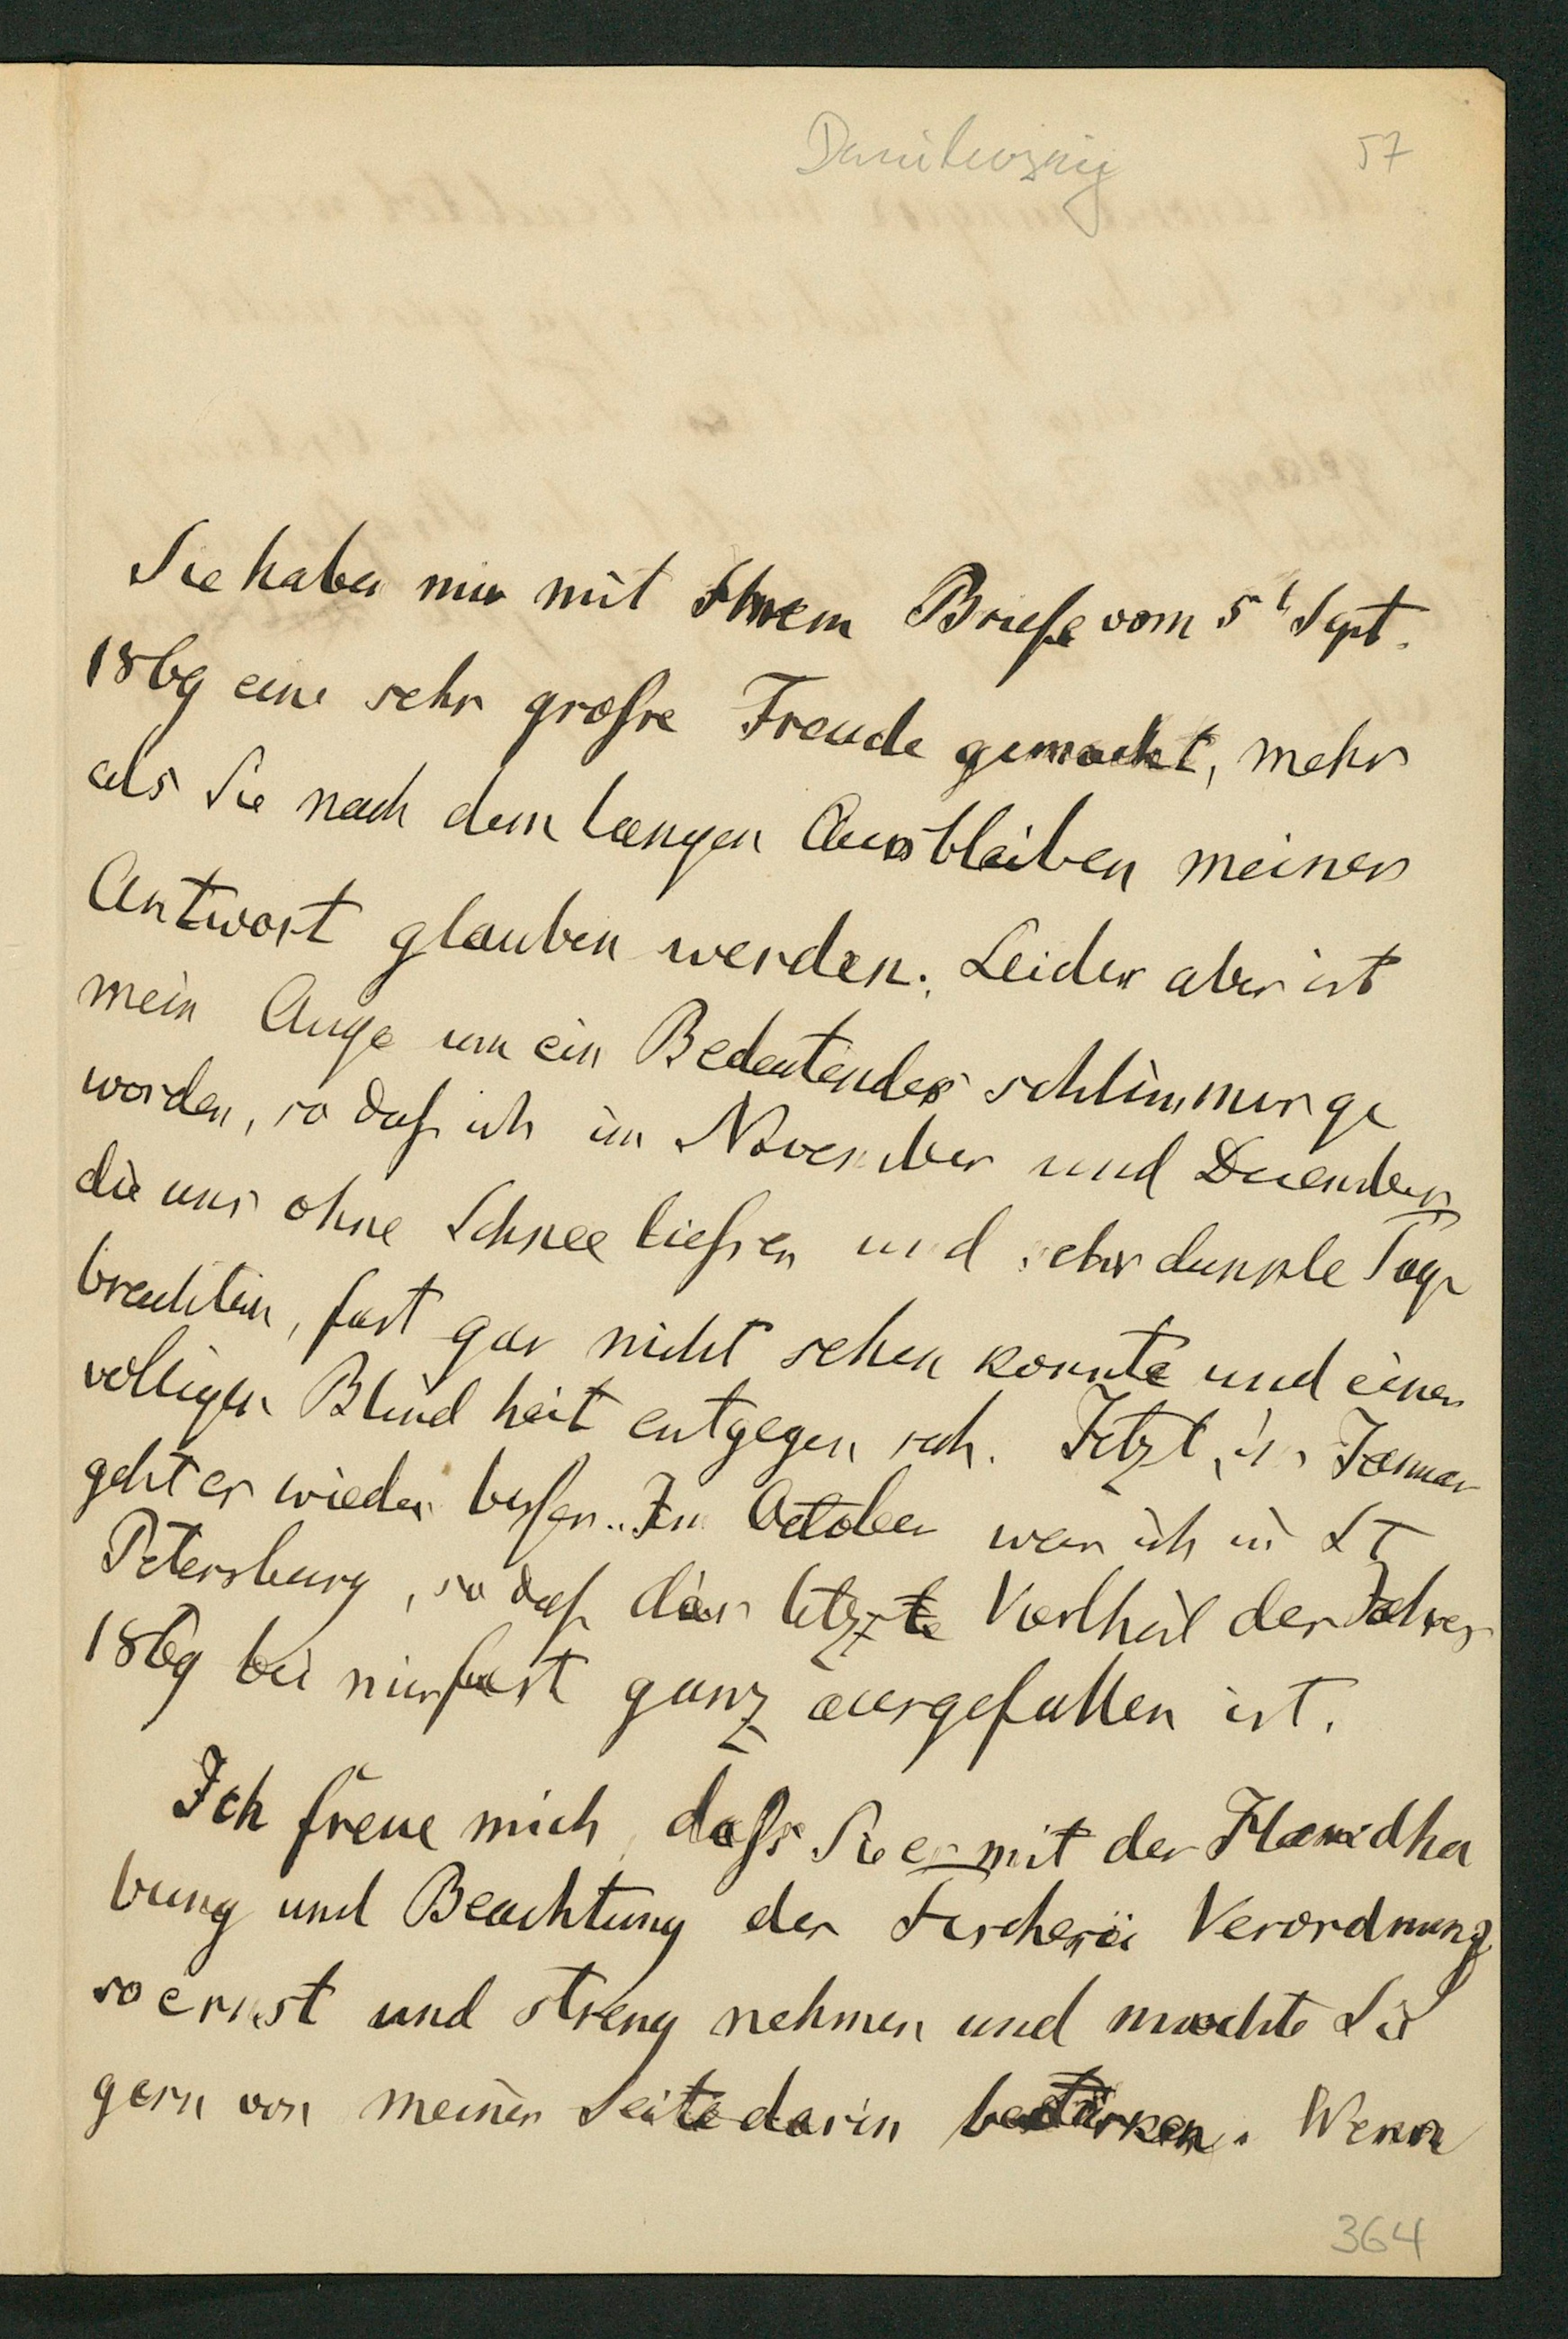 Danilewsky 57
Sie haben mir mit Ihrem Briefe vom 5t Sept.
1869 eine sehr grosse Freude gemacht, mehr
als Sie nach dem langen Ausbleiben meiner
Antwort glauben werden. Leider aber ist
mein Auge um ein Bedeutendes schlimmer ge
worden, so dass ich im November und December
die uns ohne Schnee liessen und sehr dunkle Tage
brachten, fast gar nicht sehen konnte und einer
völligen Blindheit entgegen sah. Jetzt, im Januar
geht es wieder besser. Im October war ich in St
Petersburg, so dass das letzte Viertheil des Jahres
1869 bei mir fast ganz ausgefallen ist.
Ich freue mich, dass Sie es mit der Handha
bung und Beachtung der Fischerei Verordnung
so ernst und streng nehmen und möchte Sie
gern von meiner Seite darin bestärken. Wenn
364